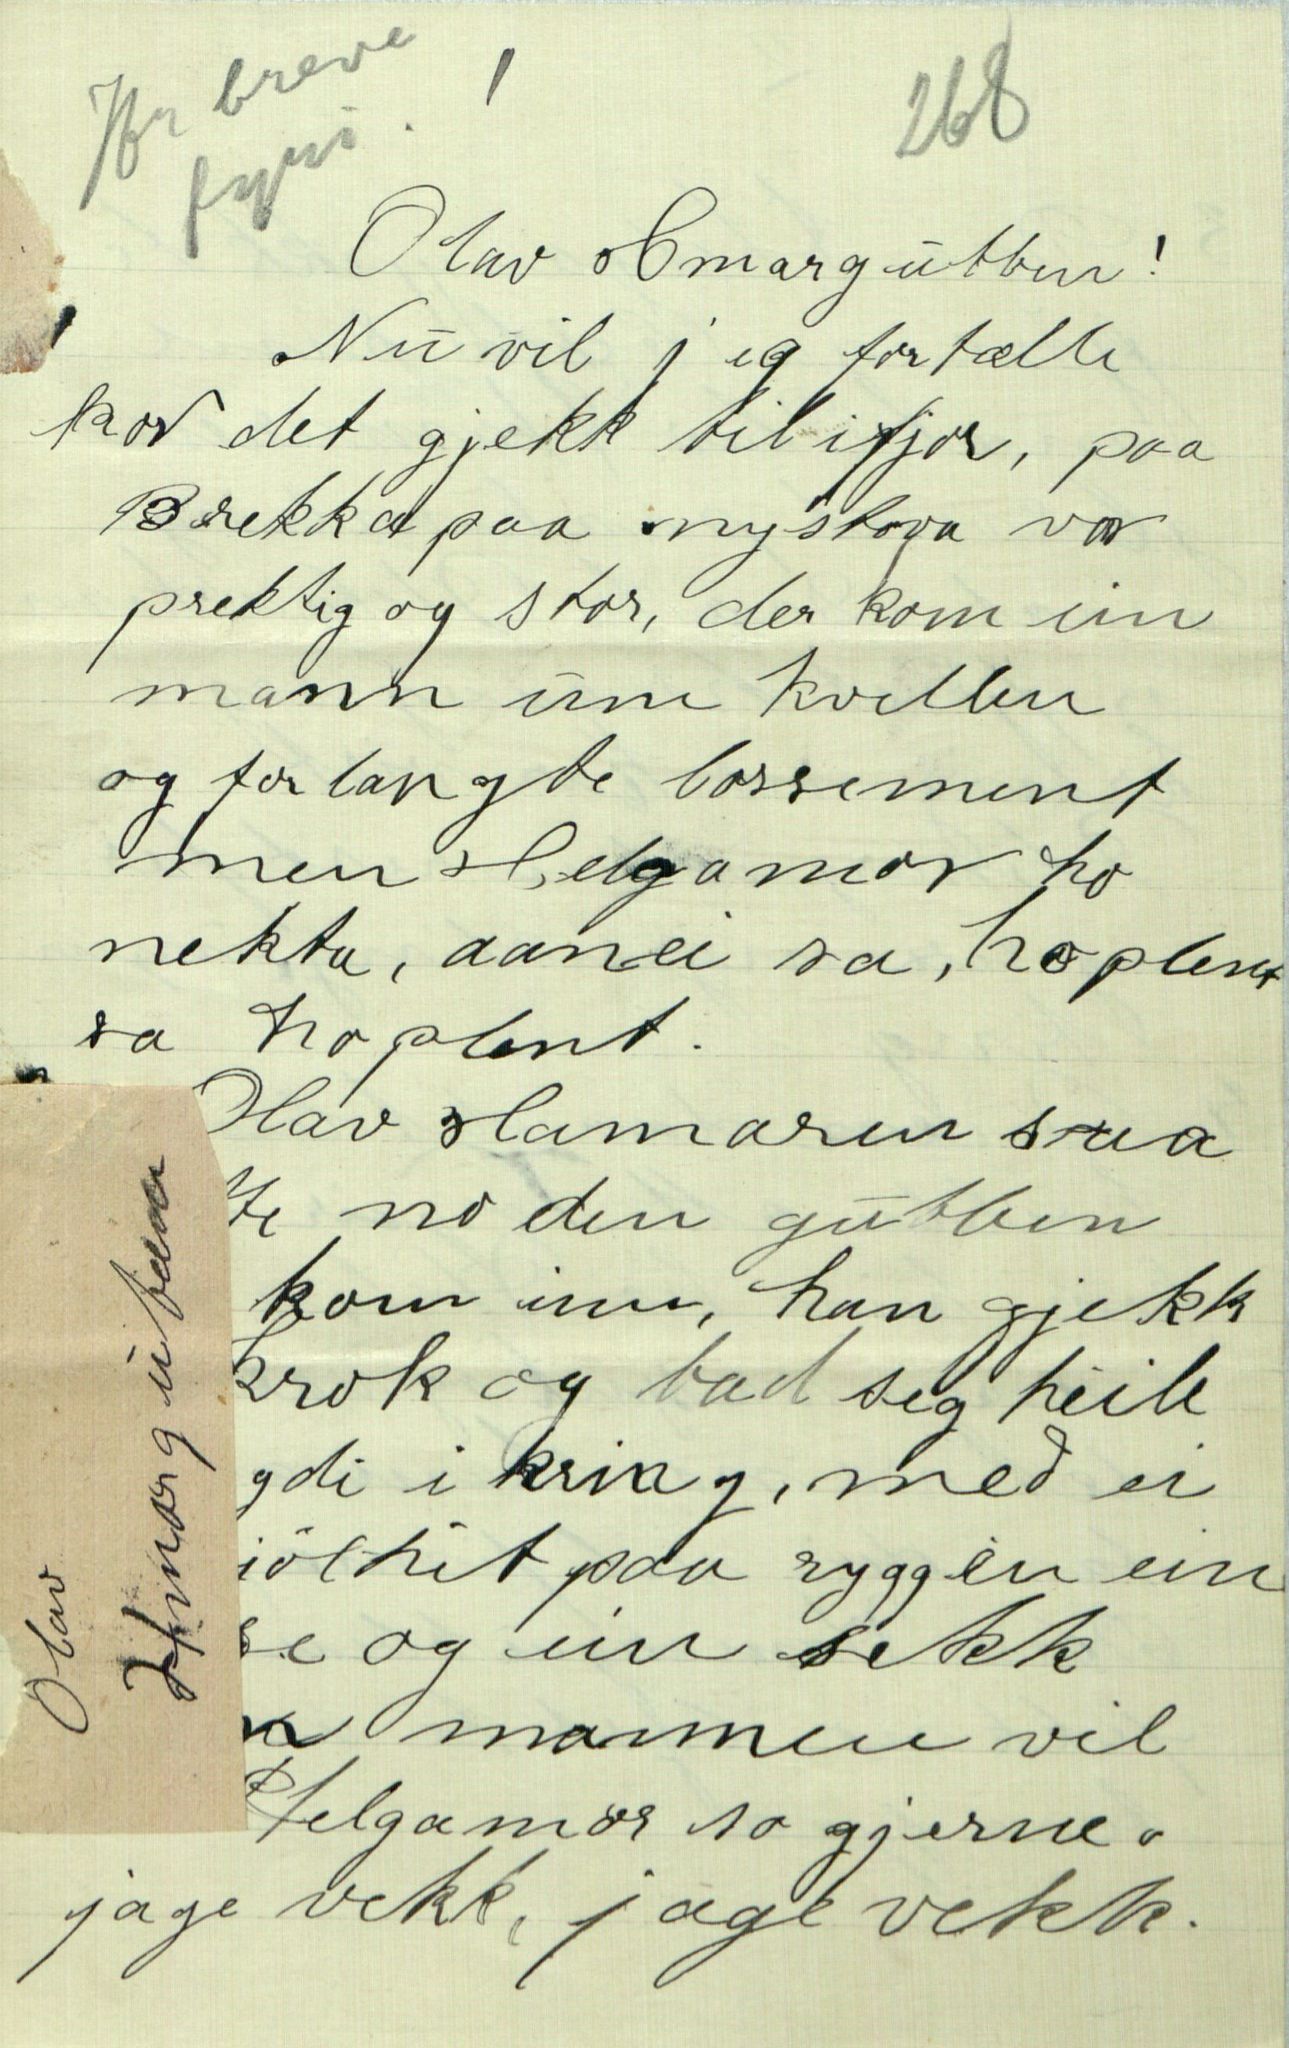 Jfr breve
fyrr!
268
Olav Hmargutten!
Nu vil jeg fortælle
kor det gjekk til ifjor, paa
Brekka paa nystova var
prektig og stor, der kom ein
mann um kvellen
og forlangte lossement
men Helgamor ho
nekta, aanei sa, ho plent
sa ho plent.
Olav Hamaren saa
te no den gutten
kom inn, han gjekk
krok og bad seg heile
gdi i kring, med ei
iölhit paa ryggen ein
se og ein sekk
n mannen vil
Helgamor so gjerne
jage vekk, jage vekk.
Olav
Hmarguten